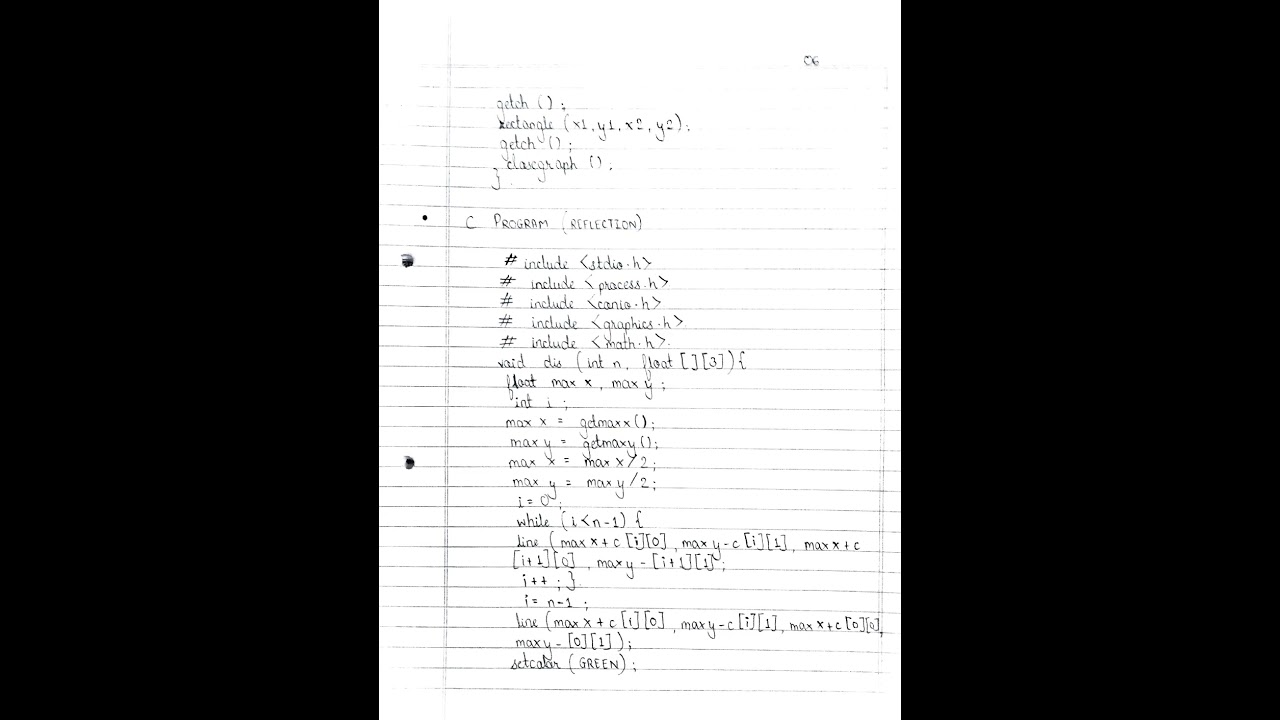 06
getch ();
rectangle (x1, y1, x2, y2);
getch ();
closegraph ();
}
• C PROGRAM (REFLECTION)
# include <stdio.h>
# include <process.h>
# include <conio.h>
# include <graphics.h>
# include <math.h>
void dis (int n, float [][3]){
float max x, max y ;
int i ;
max x = getmaxx();
max y = getmaxy();
max x = max x/2;
max y = max y/2;
i = 0 ;
while (i<n-1) {
line (max x + c [i][0], max y - c [i][1], max x + c
[i+1][0], max y - [i+1][1] ;
i++ ; }
i = n-1 ;
line (max x + c [i][0], max y - c [i][1], max x + c [0][0],
max y - [0][1]);
setcolor (GREEN) ;